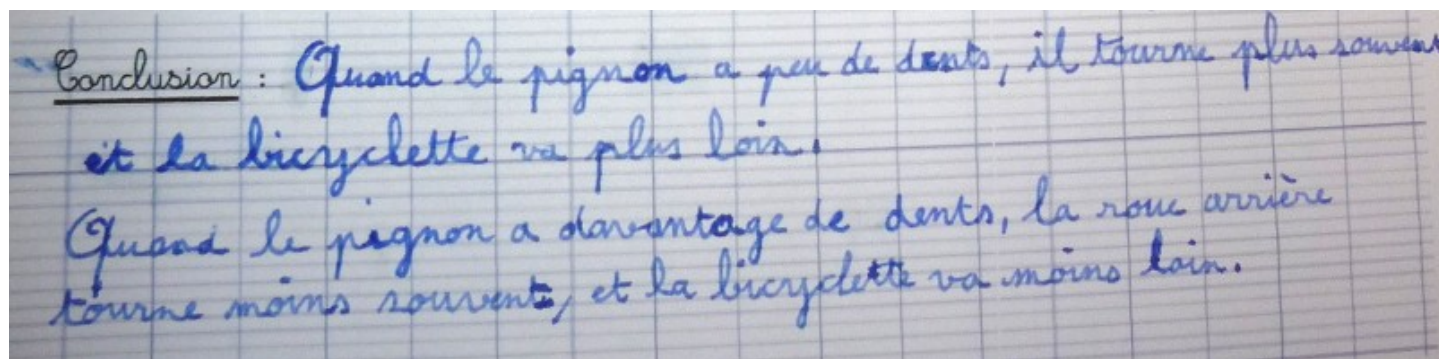 Conclusion : Quand le pignon a peu de dents, il tourne plus souvent
et la bicyclette va plus loin.
Quand le pignon a davantage de dents, la roue arrière
tourne moins souvent, et la bicyclette va moins loin.